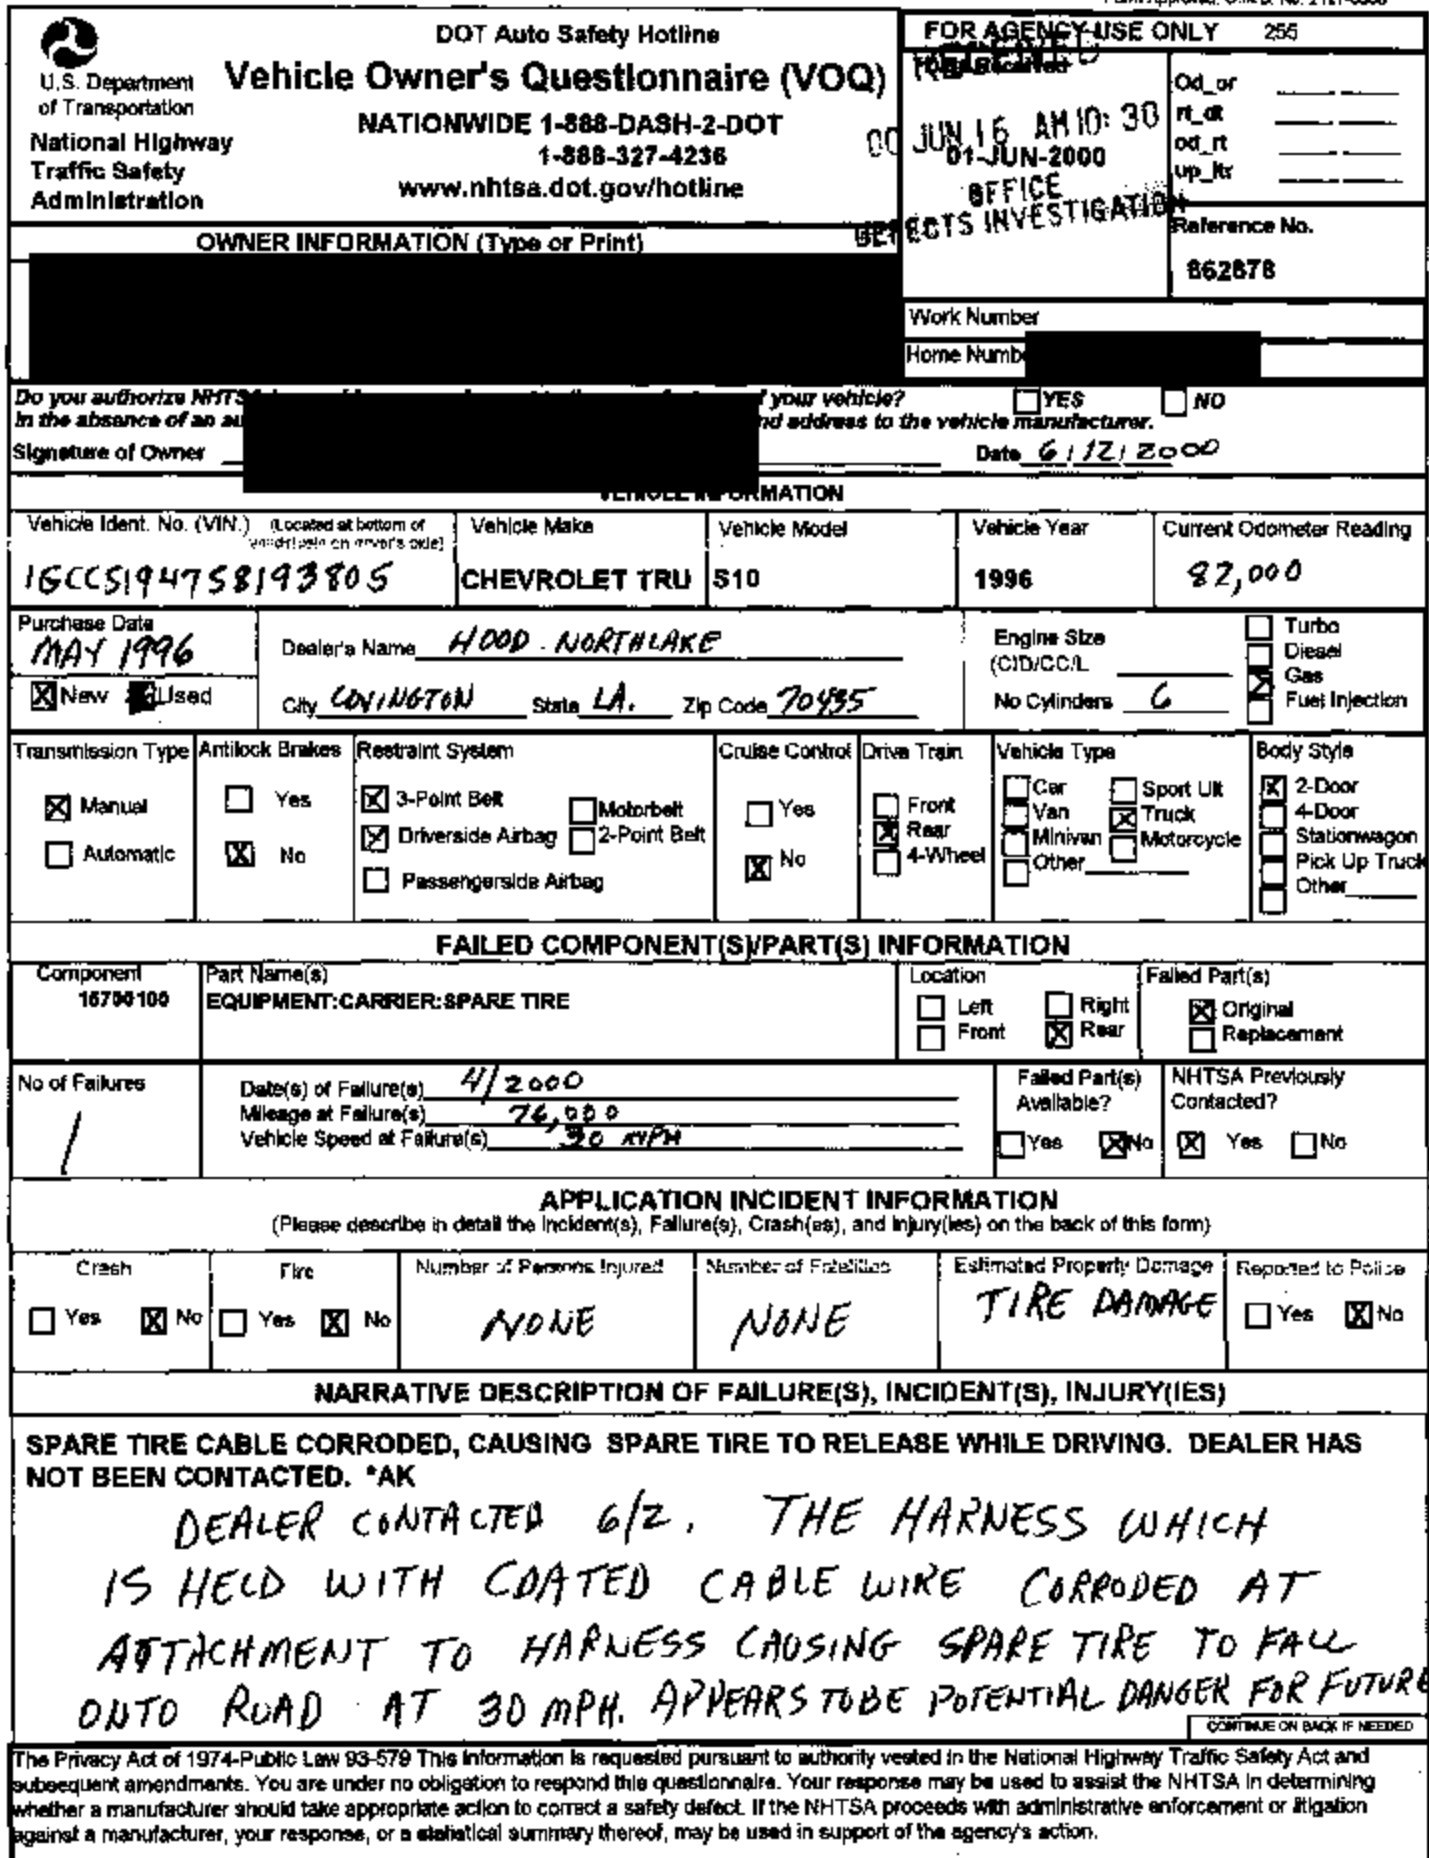 DOT Auto Safety Hotline
Vehicle Owner's Questionnaire (VOQ)
NATIONWIDE 1-888-DASH-2-DOT
1-888-327-4236
www.nhtsa.dot.gov/hotline
U.S. Department
of Transportation
National Highway
Traffic Safety
Administration
FOR AGENCY USE ONLY 255
Date Received
RECEIVED
00 JUN 16 AM 10:30
01-JUN-2000
OFFICE
DEFECTS INVESTIGATION
Od_or
rt_dt
od_rt
up_ltr
Reference No.
862878
OWNER INFORMATION (Type or Print)
Work Number
Home Numb
Do you authorize NHTS your vehicle? YES NO
In the absence of an au nd address to the vehicle manufacturer.
Signature of Owner Date 6/12/2000
VEHICLE INFORMATION
Vehicle Ident. No. (VIN.) (Located at bottom of
1GCCS194758193805
Vehicle Make
CHEVROLET TRU
Vehicle Model
S10
Vehicle Year
1996
Current Odometer Reading
82,000
Purchase Date
MAY 1996
New Used
Dealer's Name HOOD NORTHLAKE
City COVINGTON State LA. Zip Code 70435
Engine Size
(CID/CC/L
No Cylinders 6
Turbo
Diesel
Gas
Fuel Injection
Transmission Type
Manual
Automatic
Antilock Brakes
Yes
No
Restraint System
3-Point Belt
Driverside Airbag
Passengerside Airbag
Motorbelt
2-Point Belt
Cruise Control
Yes
No
Drive Train
Front
Rear
4-Wheel
Vehicle Type
Car
Van
Minivan
Other
Sport Ult
Truck
Motorcycle
Body Style
2-Door
4-Door
Stationwagon
Pick Up Truck
Other
FAILED COMPONENT(S)/PART(S) INFORMATION
Component
16700100
Part Name(s)
EQUIPMENT:CARRIER:SPARE TIRE
Location
Left Right
Front Rear
Failed Part(s)
Original
Replacement
No of Failures
1
Date(s) of Failure(s) 4/2000
Mileage at Failure(s) 76,000
Vehicle Speed at Failure(s) 30 MPH
Failed Part(s)
Available?
Yes No
NHTSA Previously
Contacted?
Yes No
APPLICATION INCIDENT INFORMATION
(Please describe in detail the Incident(s), Failure(s), Crash(es), and Injury(ies) on the back of this form)
Crash
Yes No
Fire
Yes No
Number of Persons Injured
NONE
Number of Fatalities
NONE
Estimated Property Damage
TIRE DAMAGE
Reported to Police
Yes No
NARRATIVE DESCRIPTION OF FAILURE(S), INCIDENT(S), INJURY(IES)
SPARE TIRE CABLE CORRODED, CAUSING SPARE TIRE TO RELEASE WHILE DRIVING. DEALER HAS
NOT BEEN CONTACTED. *AK
DEALER CONTACTED 6/2. THE HARNESS WHICH
IS HELD WITH COATED CABLE WIRE CORRODED AT
ATTACHMENT TO HARNESS CAUSING SPARE TIRE TO FALL
ONTO ROAD AT 30 MPH. APPEARS TO BE POTENTIAL DANGER FOR FUTURE
CONTINUE ON BACK IF NEEDED
The Privacy Act of 1974-Public Law 93-579 This information is requested pursuant to authority vested in the National Highway Traffic Safety Act and
subsequent amendments. You are under no obligation to respond this questionnaire. Your response may be used to assist the NHTSA in determining
whether a manufacturer should take appropriate action to correct a safety defect. If the NHTSA proceeds with administrative enforcement or litigation
against a manufacturer, your response, or a statistical summary thereof, may be used in support of the agency's action.